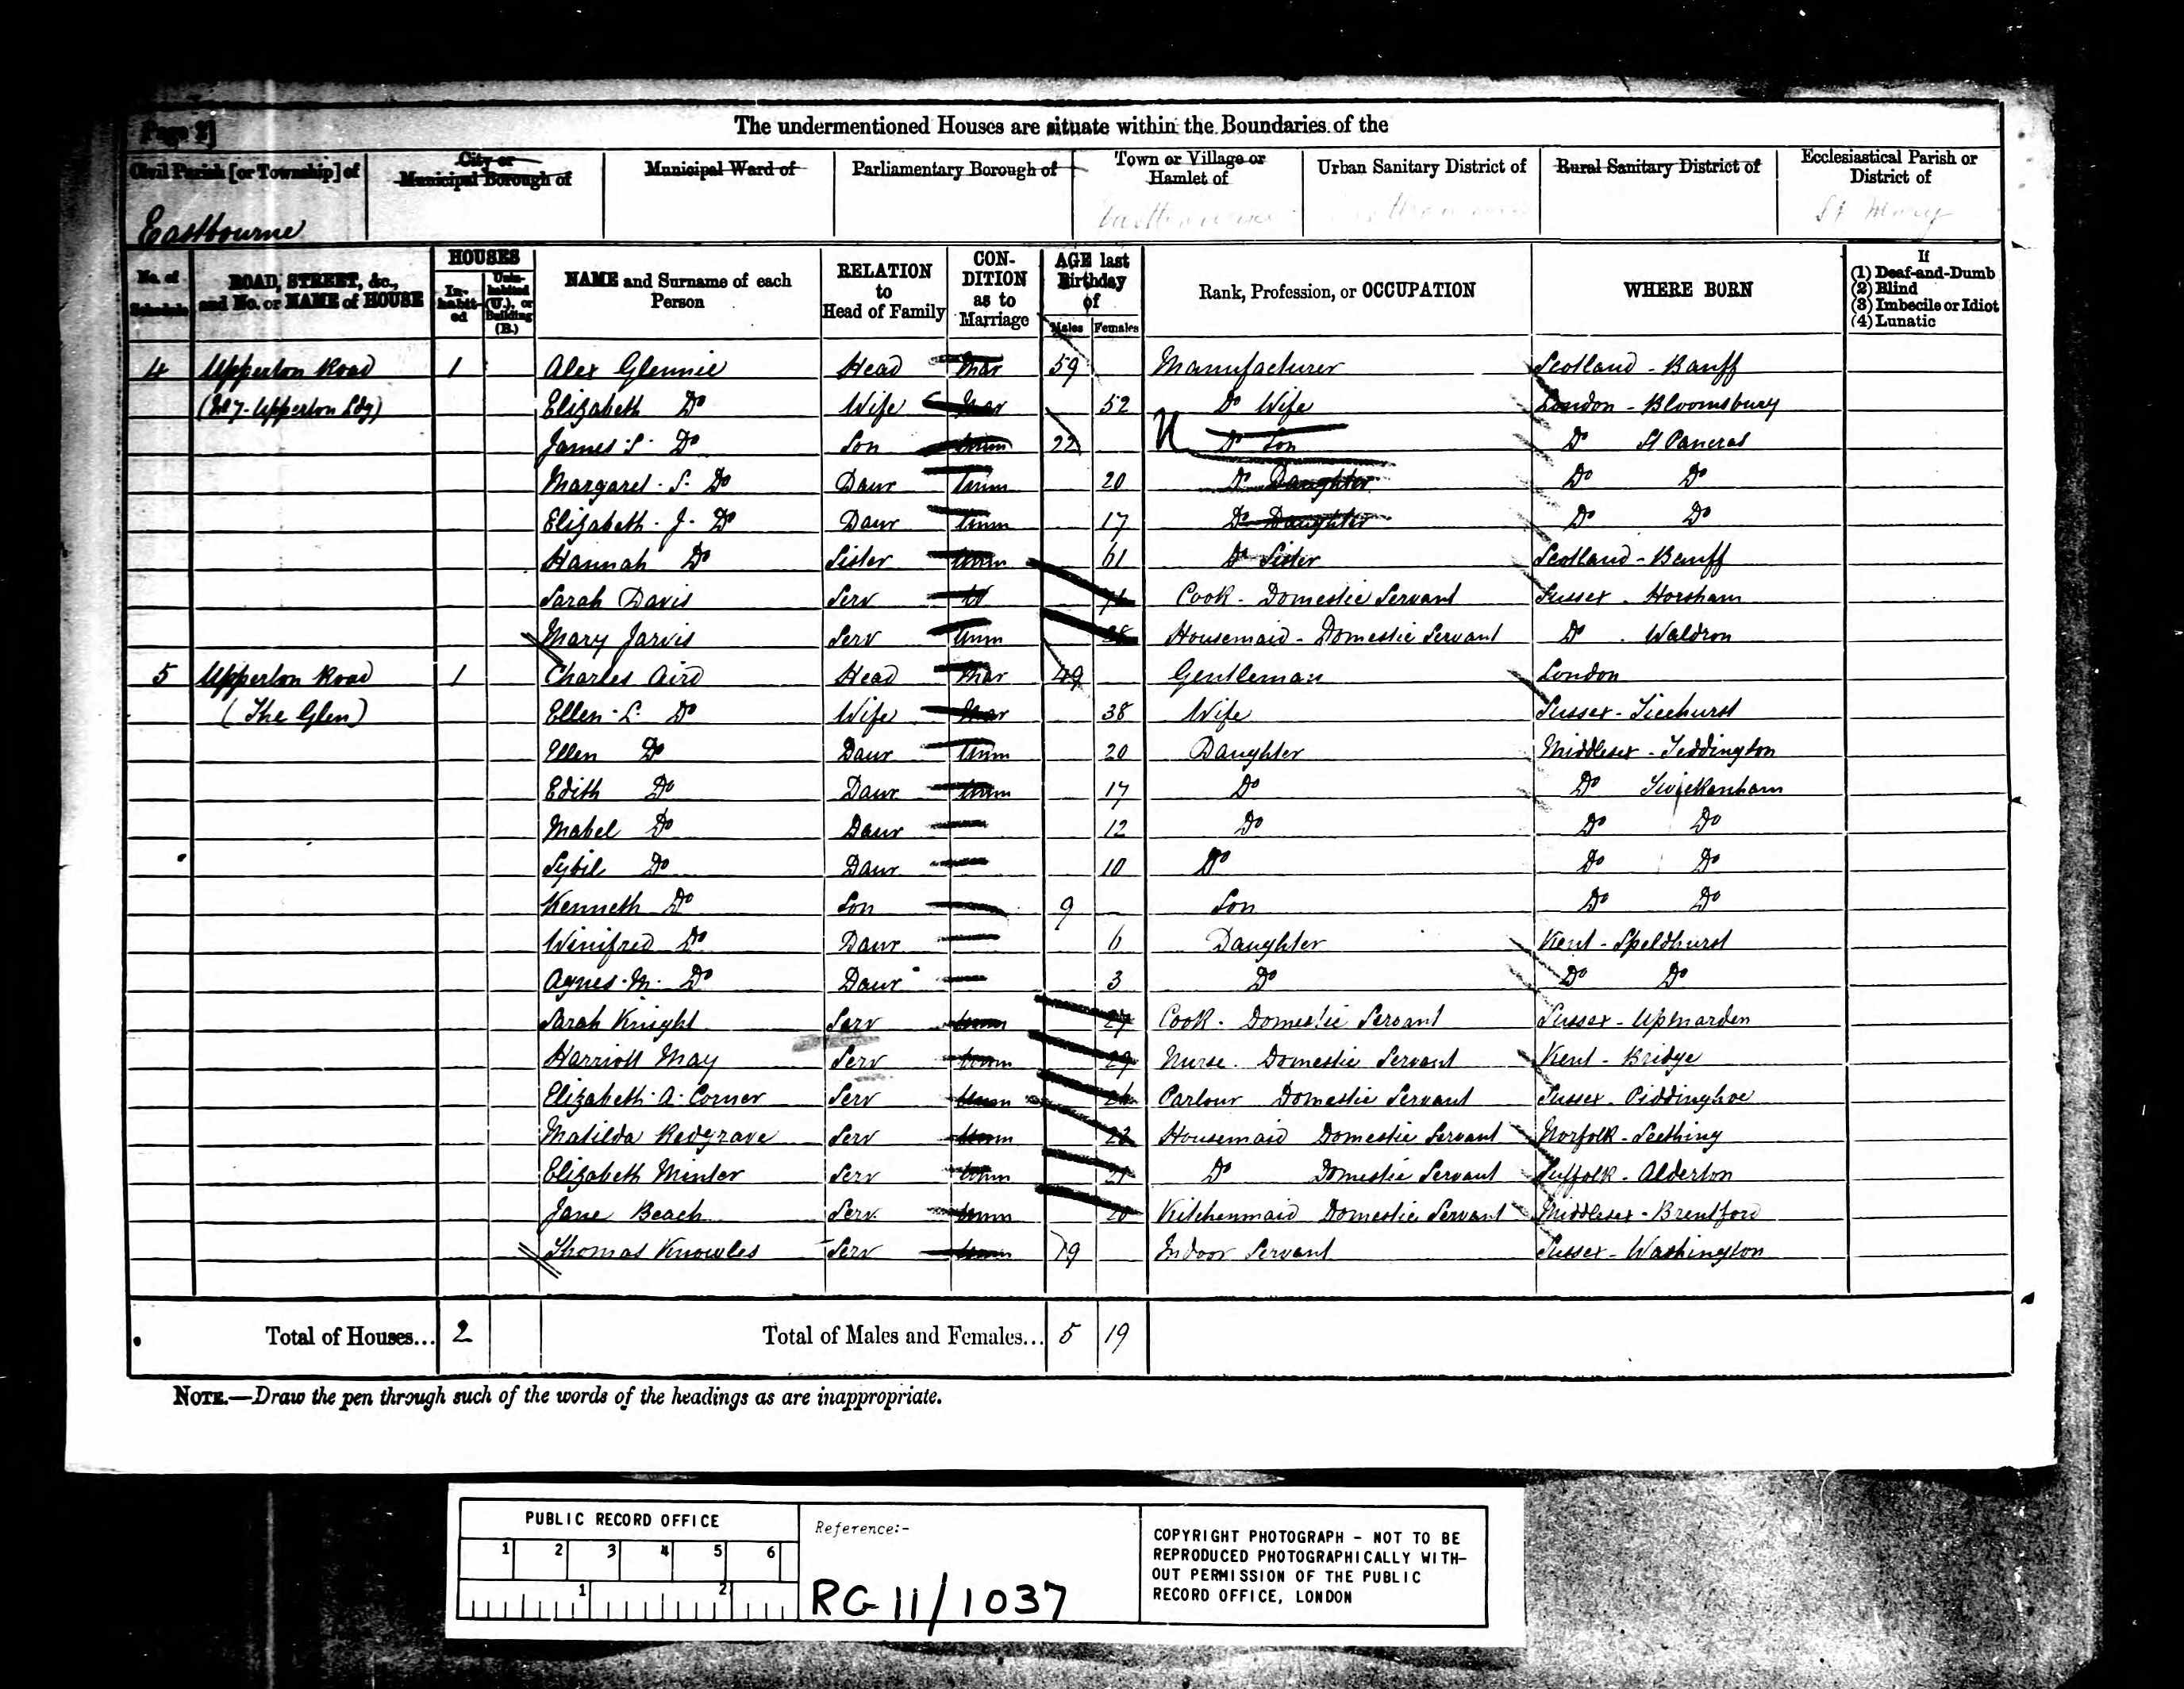 Page 2]
The undermentioned Houses are situate within the Boundaries of the
Civil Parish [or Township] of | City or Municipal Borough of | Municipal Ward of | Parliamentary Borough of | Town or Village or Hamlet of | Urban Sanitary District of | Rural Sanitary District of | Ecclesiastical Parish or District of
Eastbourne | St Mary
No. of Schedule | ROAD, STREET, &c., and No. or NAME of HOUSE | HOUSES In-habit-ed | Unin-habited (U.), or Building (B.) | NAME and Surname of each Person | RELATION to Head of Family | CON-DITION as to Marriage | AGE last Birthday of Males | Females | Rank, Profession, or OCCUPATION | WHERE BORN | If (1) Deaf-and-Dumb (2) Blind (3) Imbecile or Idiot (4) Lunatic
4 Upperton Road 1 Alex Glennie Head Mar 59 Manufacturer Scotland - Banff
(No 7 - Upperton Ldg) Elizabeth Do Wife Mar 52 Do Wife London - Bloomsbury
James S. Do Son Unm 22 Do Son Do St Pancras
Margaret. S. Do Daur Unm 20 Do Daughter Do Do
Elizabeth. J. Do Daur Unm 17 Do Daughter Do Do
Hannah Do Sister Unm 61 Do Sister Scotland - Banff
Sarah Davis Serv Cook - Domestic Servant Sussex - Horsham
Mary Jarvis Serv Unm Housemaid - Domestic Servant Do - Waldron
5 Upperton Road 1 Charles Aird Head Mar 49 Gentleman London
(The Glen) Ellen. L. Do Wife Mar 38 Wife Sussex - Ticehurst
Ellen Do Daur Unm 20 Daughter Middlesex - Teddington
Edith Do Daur Unm 17 Do Do Twickenham
Mabel Do Daur 12 Do Do Do
Sybil Do Daur 10 Do Do Do
Kenneth Do Son 9 Son Do Do
Winifred Do Daur 6 Daughter Kent - Speldhurst
Agnes. M. Do Daur 3 Do Do Do
Sarah Knight Serv Unm 27 Cook. Domestic Servant Sussex - Upmarden
Harriott May Serv Unm 29 Nurse. Domestic Servant Kent - Bridge
Elizabeth. A. Corner Serv Unm Parlour Domestic Servant Sussex - Piddinghoe
Matilda Redgrave Serv Unm 23 Housemaid Domestic Servant Norfolk - Seething
Elizabeth Minter Serv Unm 21 Do Domestic Servant Suffolk - Alderton
Jane Beach Serv. Unm 20 Kitchenmaid Domestic Servant Middlesex - Brentford
Thomas Knowles Serv Unm 19 Indoor Servant Sussex - Washington
Total of Houses... 2 Total of Males and Females... 5 19
NOTE.—Draw the pen through such of the words of the headings as are inappropriate.
PUBLIC RECORD OFFICE
1 2 3 4 5 6
1 2
Reference:-
RG 11/1037
COPYRIGHT PHOTOGRAPH - NOT TO BE
REPRODUCED PHOTOGRAPHICALLY WITH-
OUT PERMISSION OF THE PUBLIC
RECORD OFFICE, LONDON